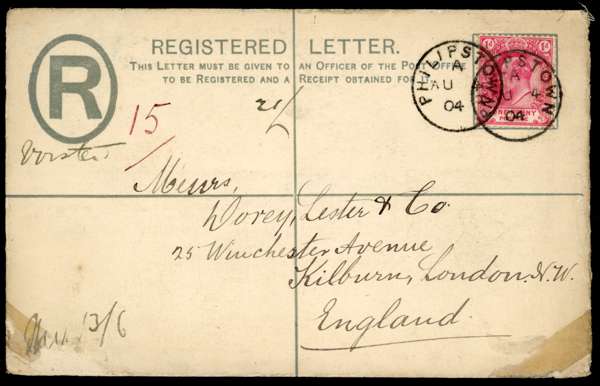 REGISTERED LETTER.
THIS LETTER MUST BE GIVEN TO AN OFFICER OF THE POST OFFICE
TO BE REGISTERED AND A RECEIPT OBTAINED FOR IT.
R
PHILIPSTOWN
A
AU 4
04
PHILIPSTOWN
A
AU 4
04
ONE PENNY
15
Messrs,
Dovey, Lester & Co
25 Winchester Avenue
Kilburn, London. N.W.
England.
13/6